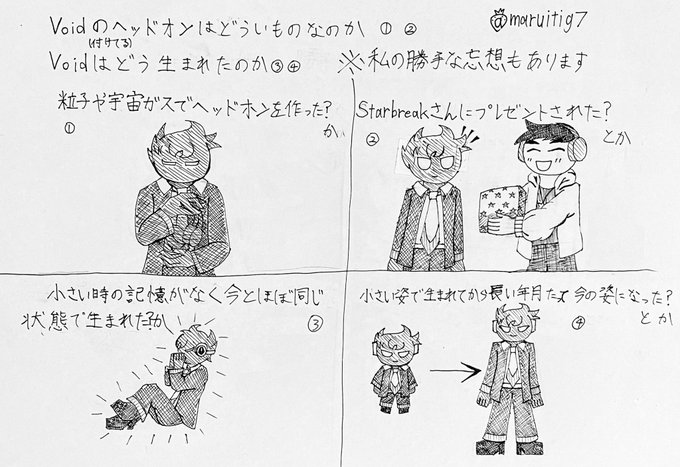 Voidのヘッドオンはどういものなのか ① ②
(付けてる)
@maruitig7
Voidはどう生まれたのか③④
※私の勝手な忘想もあります
粒子や宇宙ガスでヘッドホンを作った?
か
①
Starbreakさんにプレゼントされた?
とか
②
小さい時の記憶がなく今とほぼ同じ
状態で生まれた?か
③
小さい姿で生まれてから長い年月たって今の姿になった?
とか
④